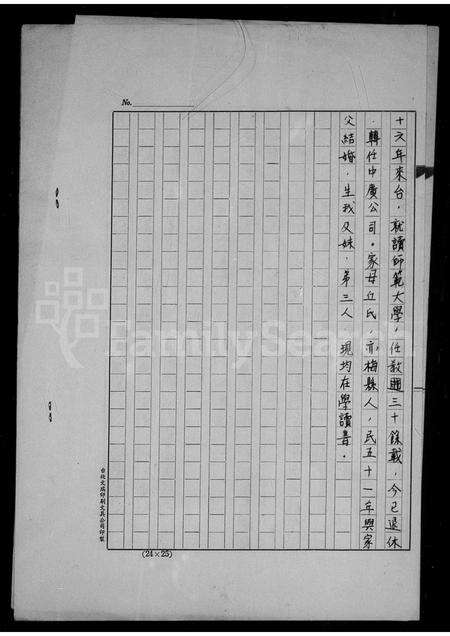 No.
十六年來台，就讀師範大學，任教週三十餘載，今已退休
，轉任中廣公司。家母丘氏，亦梅縣人，民五十一年與家
父結婚，生我及妹、弟三人　現均在學讀書。
(24×25)
台北文成印刷文具公司印製
FamilySearch